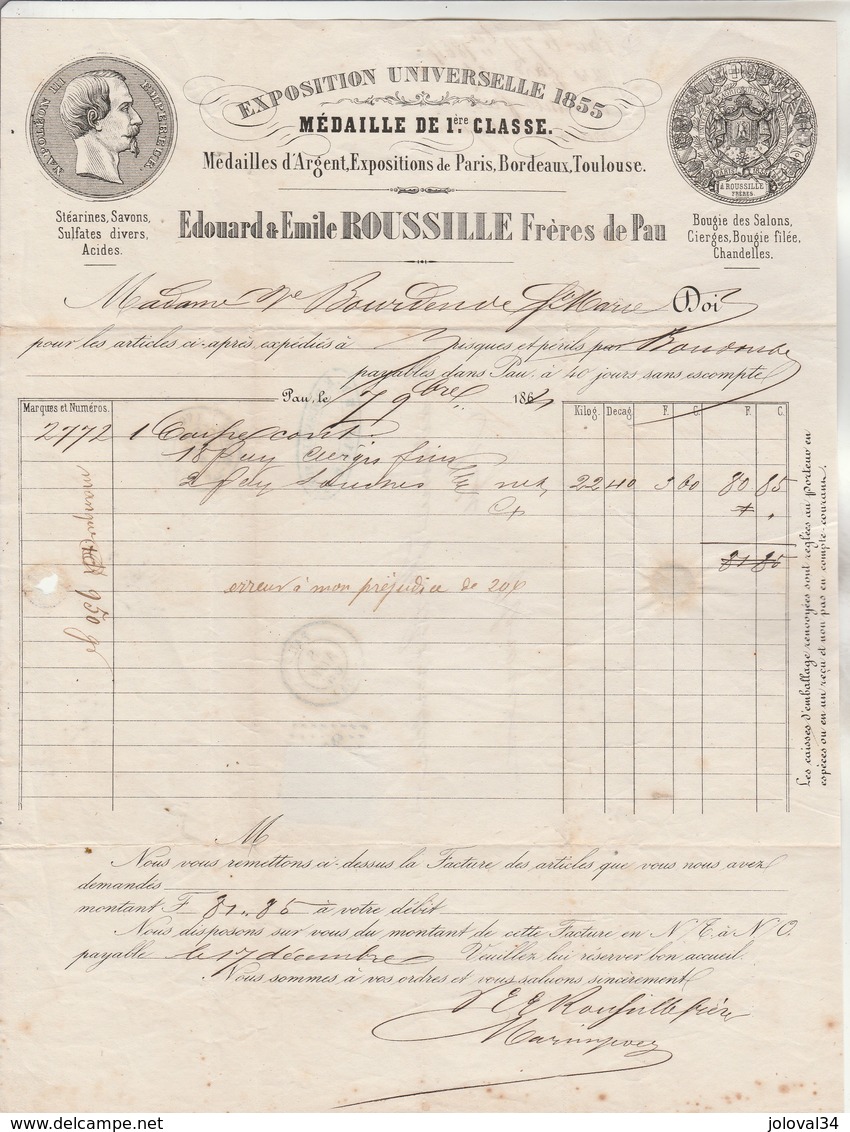 EXPOSITION UNIVERSELLE 1855
MÉDAILLE DE 1ère CLASSE.
Médailles d'Argent, Expositions de Paris, Bordeaux, Toulouse.
NAPOLÉON III EMPEREUR.
& ROUSSILLE
FRÈRES.
Stéarines, Savons,
Sulfates divers,
Acides.
Edouard & Emile ROUSSILLE Frères de Pau
Bougie des Salons,
Cierges, Bougie filée,
Chandelles.
Madame Ve Bourdenve Ste Marie Doi
pour les articles ci-après, expédiés à risques et périls par
payables dans Pau, à 40 jours sans escompte
Pau, le 7 9bre 1864
Marques et Numéros. Kilog. Decag F. C. F. C.
2772 1 Caisse cont.
18 cierges fins
2 net 22 40 3 60 80 85
81 85
erreur à mon préjudice de 20f
manque 950 gr
Les caisses d'emballage renvoyées sont réglées au porteur en
espèces ou en un reçu et non pas en compte-courant.
M
Nous vous remettons ci-dessus la Facture des articles que vous nous avez
demandés
montant F 81.85 à votre débit
Nous disposons sur vous du montant de cette Facture en N.T. à N/O.
payable le 17 décembre Veuillez lui réserver bon accueil.
Nous sommes à vos ordres et vous saluons sincèrement
E E Roussille frères
delcampe.net
joloval34